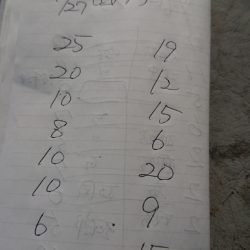 25 19
20 12
10 15
8 6
10 20
10 9
6 15